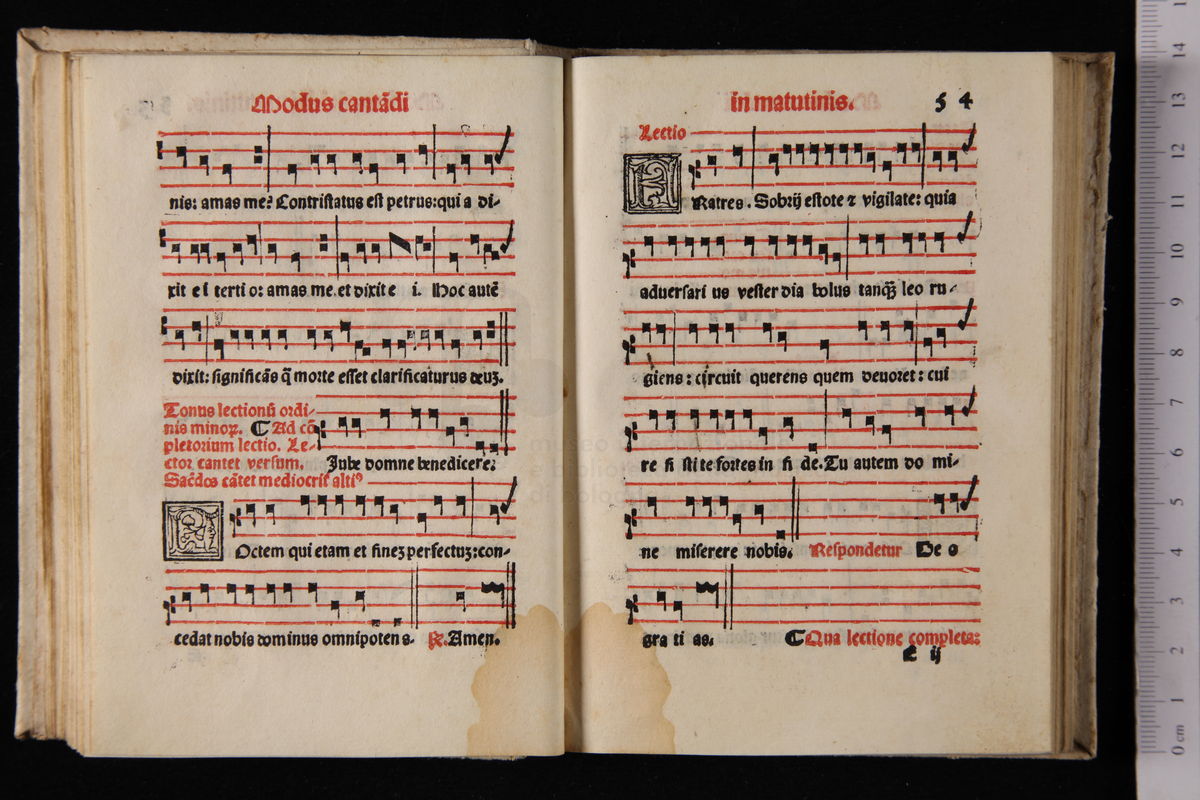 Modus cantādi
nis: amas me? Contristatus est petrus: qui a di-
xit e i terti o: amas me. et dixit e i. Hoc autē
dixit: significās q̄ morte esset clarificaturus deuʒ.
Tonus lectionū ordi-
nis minoꝝ. ¶ Ad cō
pletorium lectio. Le-
ctor cantet versum. Jube domne benedicere:
Sac̄dos cātet mediocrit̄ altiꝰ
NOctem qui etam et fineʒ perfectuʒ: con-
cedat nobis dominus omnipoten s. ℟. Amen.
in matutinis. 54
Lectio
FRatres. Sobrij estote ⁊ vigilate: quia
adversari us vester dia bolus tanqꝫ leo ru-
giens: circuit querens quem devoret: cui
re si sti te fortes in fi de. Tu autem do mi-
ne miserere nobis. Respondetur De o
gra ti as. ¶ Qua lectione completa:
E ij
museo
e biblioteca
di bologna
14
13
12
11
10
9
8
7
6
5
4
3
2
1
0 cm